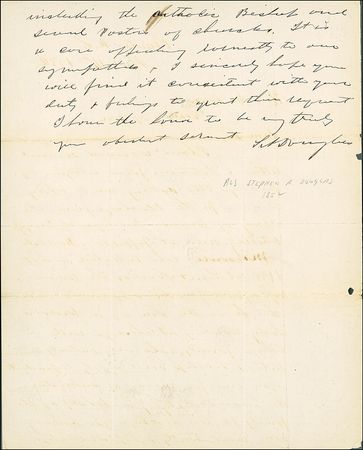 including the Catholic Bishop and
several Pastors of churches. It is
a case appealing earnestly to our
sympathies, & I sincerely hope you
will find it consistent with your
duty & feelings to grant this request
I have the honor to be very truly
your obedient servant S A Douglas
ALS STEPHEN A DOUGLAS